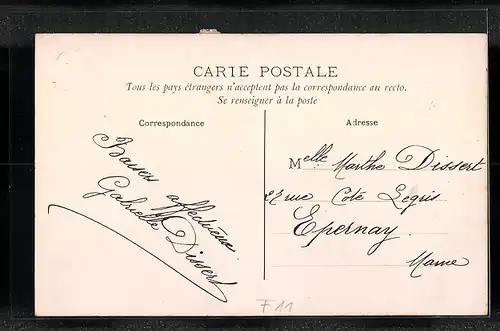 CARTE POSTALE
Tous les pays étrangers n'acceptent pas la correspondance au recto.
Se renseigner à la poste
Correspondance
Baisers affectueux
Gabrielle Dissert
Adresse
Melle Marthe Dissert
rue Coté Legris
Epernay
Marne
F 11